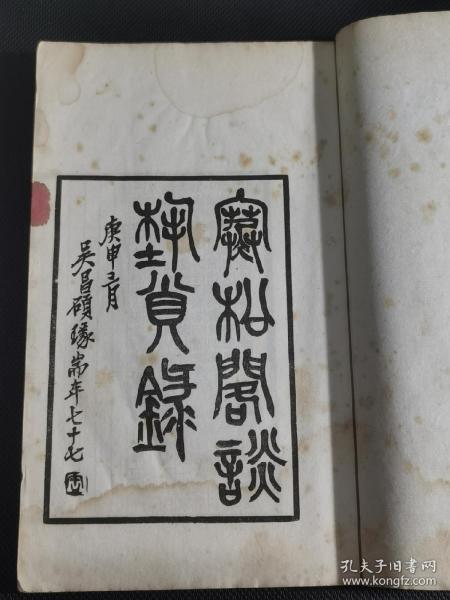 寒松閣談
藝𧴪錄
庚申三月
吳昌碩瑑耑年七十七
孔夫子旧书网
www.kongfz.com